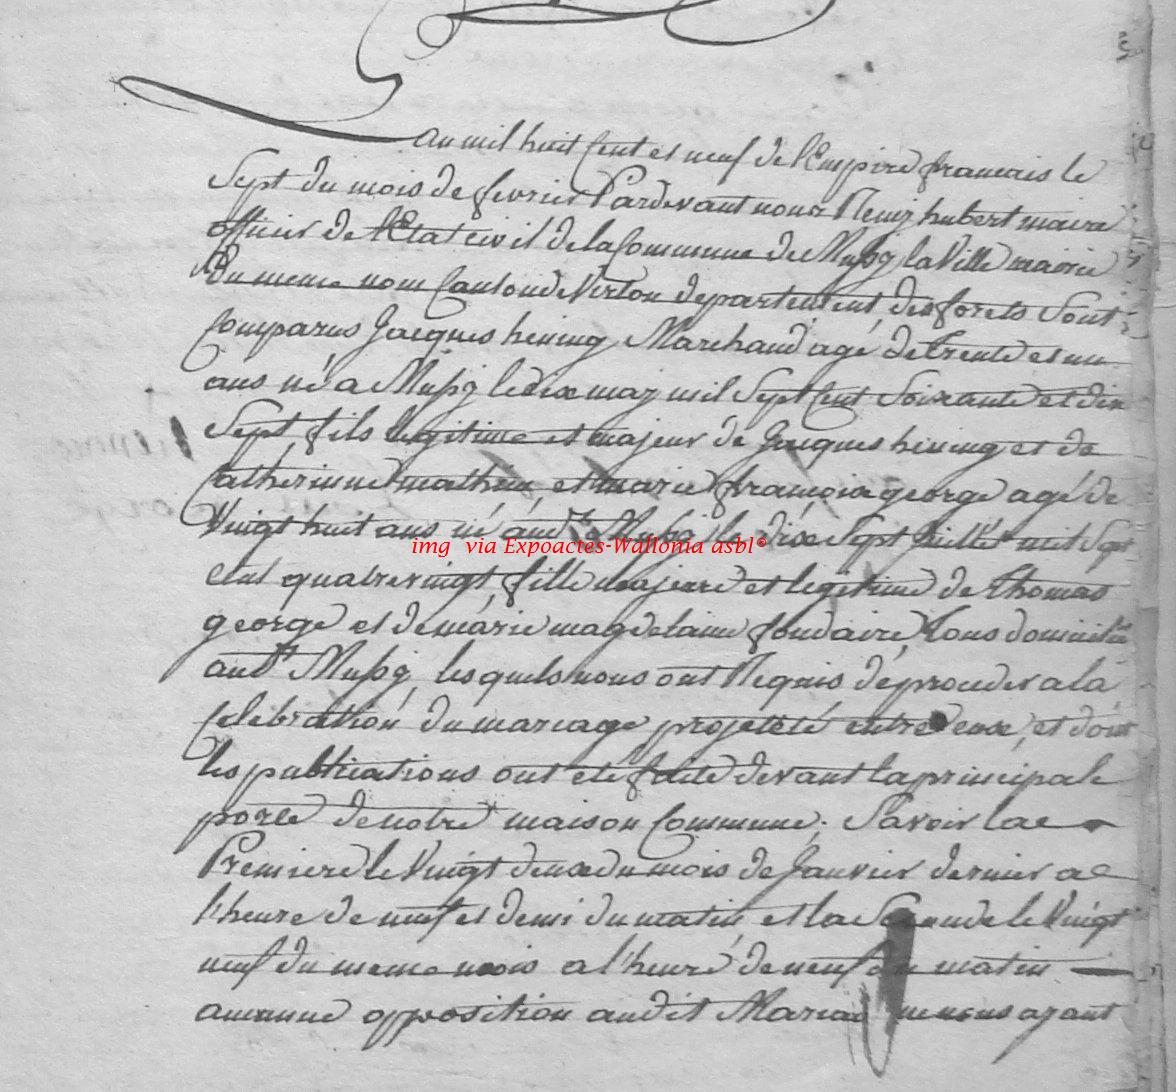 an mil huit Cent et neuf de l'Empire francais le
Sept du mois de fevrier Pardevant nous Remy hubert maire
officier de l'Etat civil de la Commune de Mussy la Ville mairie
Du meme nom Canton de Virton departement des forets Sont
Comparus Jacques hening Marchand agé de trente et un
ans né a Mussy le dix may mil Sept Cent Soixante et dix
Sept fils legitime et majeur de Jacques hening et de
Catherinne mathieu et marie françoise george agé de
Vingt huit ans né audt Mussy le dix Sept juillet mil Sept
img via Expoactes-Wallonia asbl©
Cent quatrevingt fille majeure et legitime de thomas
george et de marie magdelaine foudaire, tous domicilié
audt Mussy lesquels nous ont Requis de proceder a la
Celebration du mariage projetté entre eux, et dont
les publications ont eté faite devant la principale
porte de notre maison Commune, Savoir la
Premiere le Vingt deux du mois de Janvier dernier a
l'heure de neuf et demi du matin et la Seconde le Vingt
neuf du meme mois a l'heure de neuf du matin
aucunne opposition audit Mariage ne nous ayant